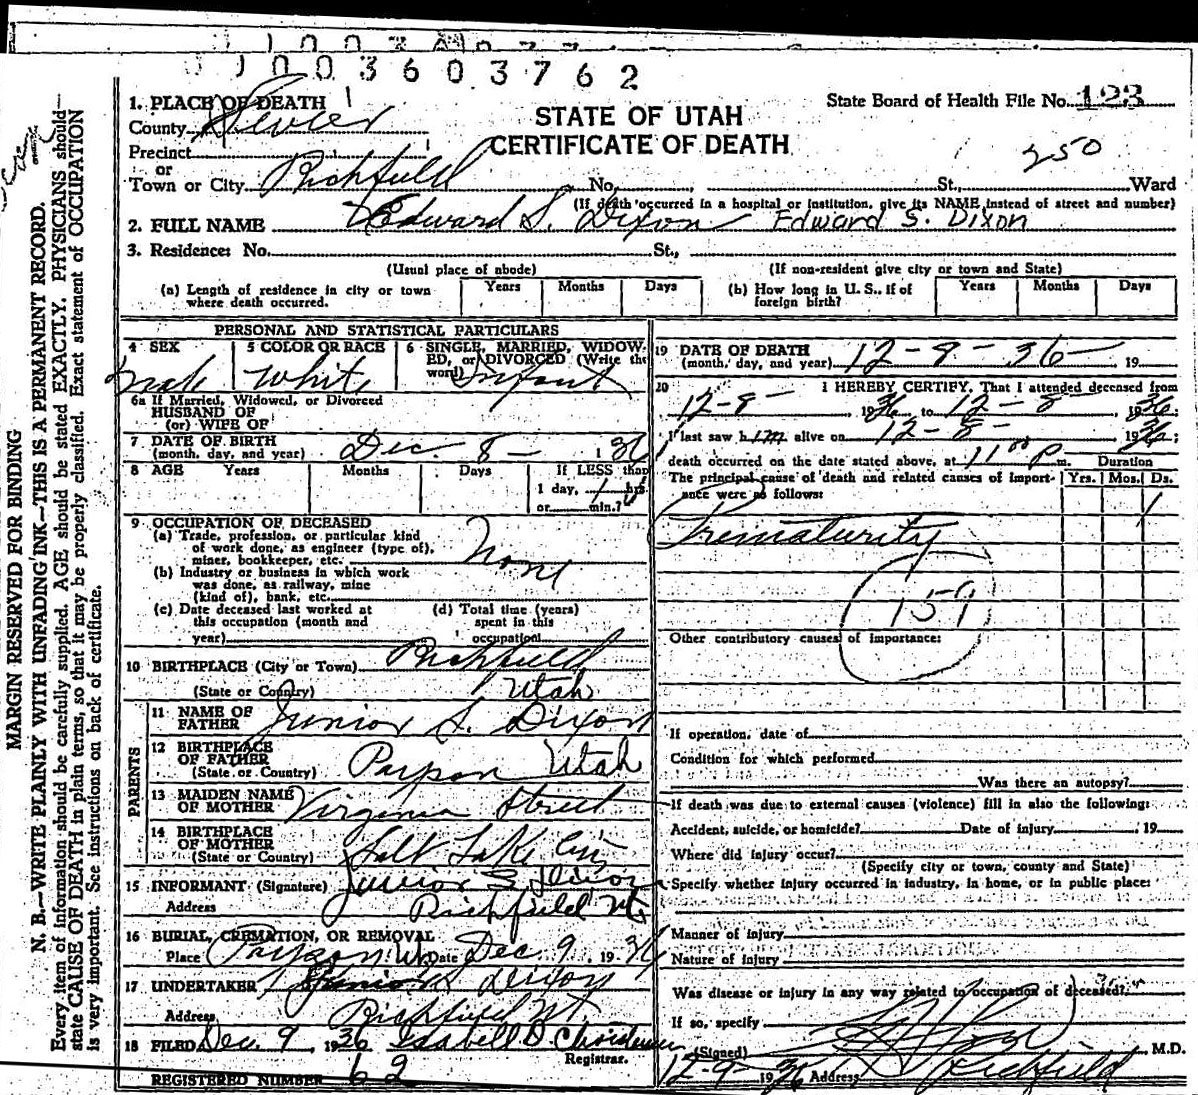 1003603762
1. PLACE OF DEATH
County Sevier
STATE OF UTAH
CERTIFICATE OF DEATH
State Board of Health File No. 123
250
Precinct
or
Town or City Richfield No. , St., Ward
(If death occurred in a hospital or institution, give its NAME instead of street and number)
2. FULL NAME Edward S. Dixon Edward S. Dixon
3. Residence: No. St.,
(Usual place of abode) (If non-resident give city or town and State)
(a) Length of residence in city or town where death occurred. Years Months Days
(b) How long in U. S., if of foreign birth? Years Months Days
PERSONAL AND STATISTICAL PARTICULARS
4 SEX 5 COLOR OR RACE 6 SINGLE, MARRIED, WIDOW-
ED, or DIVORCED (Write the
word)
male White Infant
6a If Married, Widowed, or Divorced
HUSBAND OF
(or) WIFE OF
7 DATE OF BIRTH
(month, day, and year) Dec. 8 - 1 36
8 AGE Years Months Days If LESS than
1 day, 1 hrs
or min.?
9 OCCUPATION OF DECEASED
(a) Trade, profession, or particular kind
of work done, as engineer (type of),
miner, bookkeeper, etc. None
(b) Industry or business in which work
was done, as railway, mine
(kind of), bank, etc.
(c) Date deceased last worked at
this occupation (month and
year)
(d) Total time (years)
spent in this
occupation
10 BIRTHPLACE (City or Town) Richfield
(State or Country) Utah
PARENTS
11 NAME OF
FATHER Junior S. Dixon
12 BIRTHPLACE
OF FATHER
(State or Country) Payson Utah
13 MAIDEN NAME
OF MOTHER Virginia Street
14 BIRTHPLACE
OF MOTHER
(State or Country) Salt Lake City
15 INFORMANT (Signature) Junior S. Dixon
Address Richfield Ut.
16 BURIAL, CREMATION, OR REMOVAL
Place Payson Ut. Date Dec. 9 1936
17 UNDERTAKER Junior S Dixon
Address Richfield Ut.
18 FILED Dec. 9 1936 Isabell D. Christensen
Registrar.
REGISTERED NUMBER 62
19 DATE OF DEATH
(month, day, and year) 12-8-36 19
20 I HEREBY CERTIFY, That I attended deceased from
12-8- 1936 to 12-8- 1936;
I last saw him alive on 12-8- 1936;
death occurred on the date stated above, at 11:00 P m. Duration
The principal cause of death and related causes of import-
ance were as follows: Yrs. Mos. Ds.
Prematurity 1
159
Other contributory causes of importance:
If operation, date of
Condition for which performed
Was there an autopsy?
If death was due to external causes (violence) fill in also the following:
Accident, suicide, or homicide? Date of injury , 19
Where did injury occur?
(Specify city or town, county and State)
Specify whether injury occurred in industry, in home, or in public place:
Manner of injury
Nature of injury
Was disease or injury in any way related to occupation of deceased?
If so, specify
(Signed) M.D.
12-9- 1936 Address Richfield
MARGIN RESERVED FOR BINDING
N. B.—WRITE PLAINLY WITH UNFADING INK—THIS IS A PERMANENT RECORD.
Every item of information should be carefully supplied. AGE should be stated EXACTLY. PHYSICIANS should
state CAUSE OF DEATH in plain terms, so that it may be properly classified. Exact statement of OCCUPATION
is very important. See instructions on back of certificate.